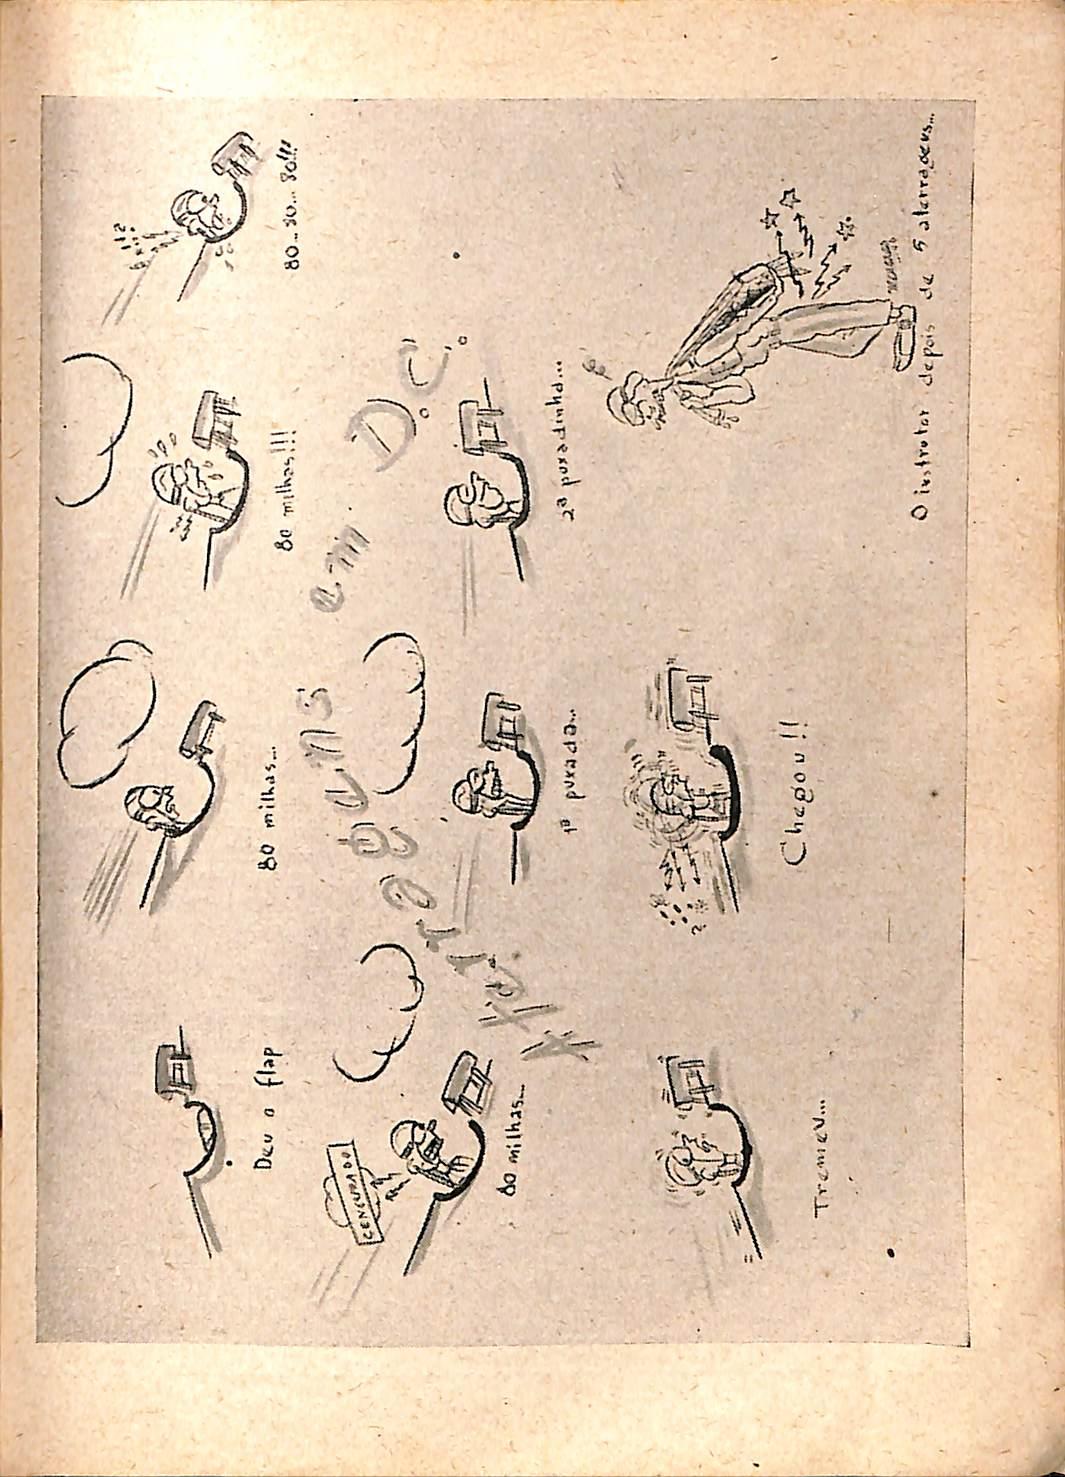 Deu o flap
80 milhas...
80 milhas!!!
80... 80... 80!!!
Aterragens em D.C.
CENSURADO
80 milhas...
1ª puxada...
2ª puxadinha...
Tremeu...
Chegou!!
O instrutor depois de 5 aterragens...